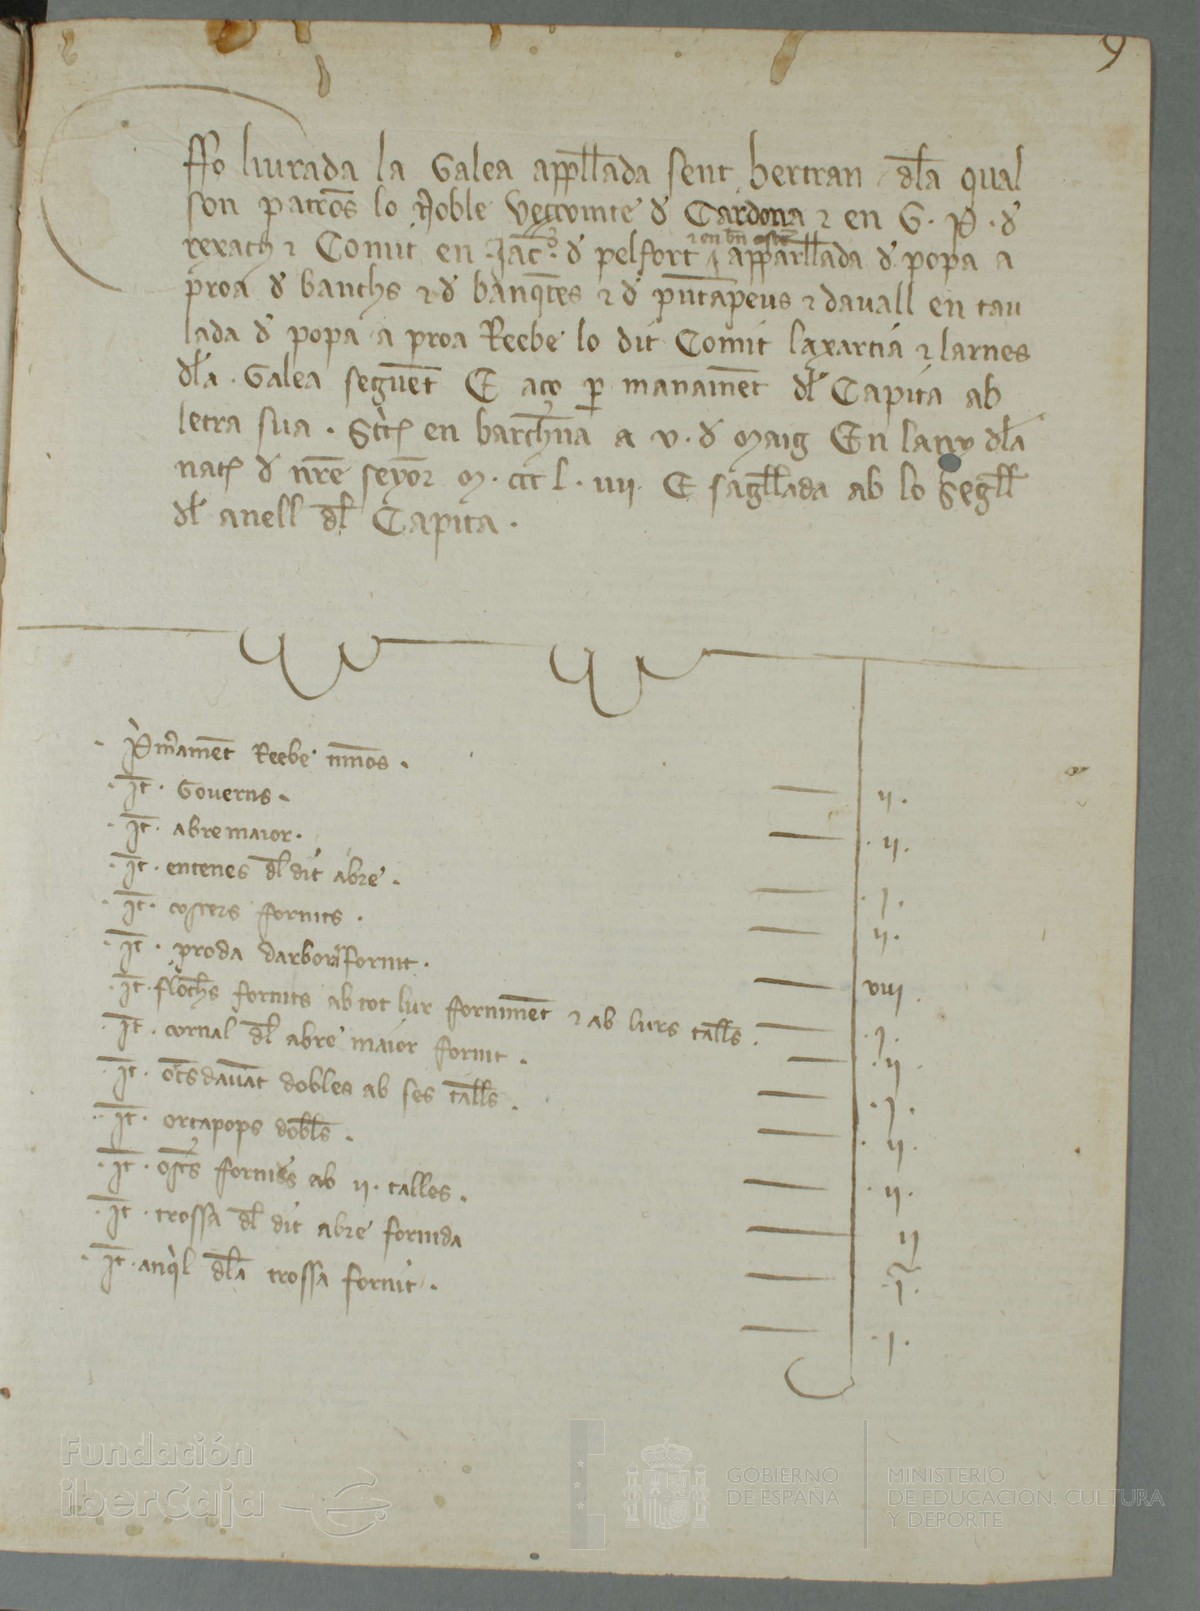 9
ffo liurada la Galea appellada sent bertran dla qual
son patrons lo Noble Vezcomte d Cardona & en G. P. d
rexach & Comit en Jac. d pelfort apparllada d popa a
proa d banchs & d banqtes & d puntapeus & davall en tau
lada d popa a proa Reebe lo dit Comit laxartia & larnes
dla Galea seguent E aço p manament dl Capita ab
letra sua . Scrit en barchna a v. d Maig En lany dla
nat d nre seyor M. ccc l. viiii. E sagllada ab lo Segll
dl anell dl Capita .
Pmerament Reebe timons .
It. Governs .
It. abre maior .
It. entenes dl dit abre .
It. costers fornits .
It. proda darbor fornit .
It. fornits ab tot lur forniment & ab lurs talls .
It. cornal dl abre maior fornit .
It. davant dobles ab ses talls .
It. orçapops dobls .
It. osts fornides ab ii. talles .
It. trossa dl dit abre fornida
It. anqil dla trossa fornit .
ii.
ii.
i.
ii.
viii.
i.
ii.
i.
ii.
ii.
ii
i.
i.
Fundación
iberCaja
GOBIERNO
DE ESPAÑA
MINISTERIO
DE EDUCACIÓN, CULTURA
Y DEPORTE